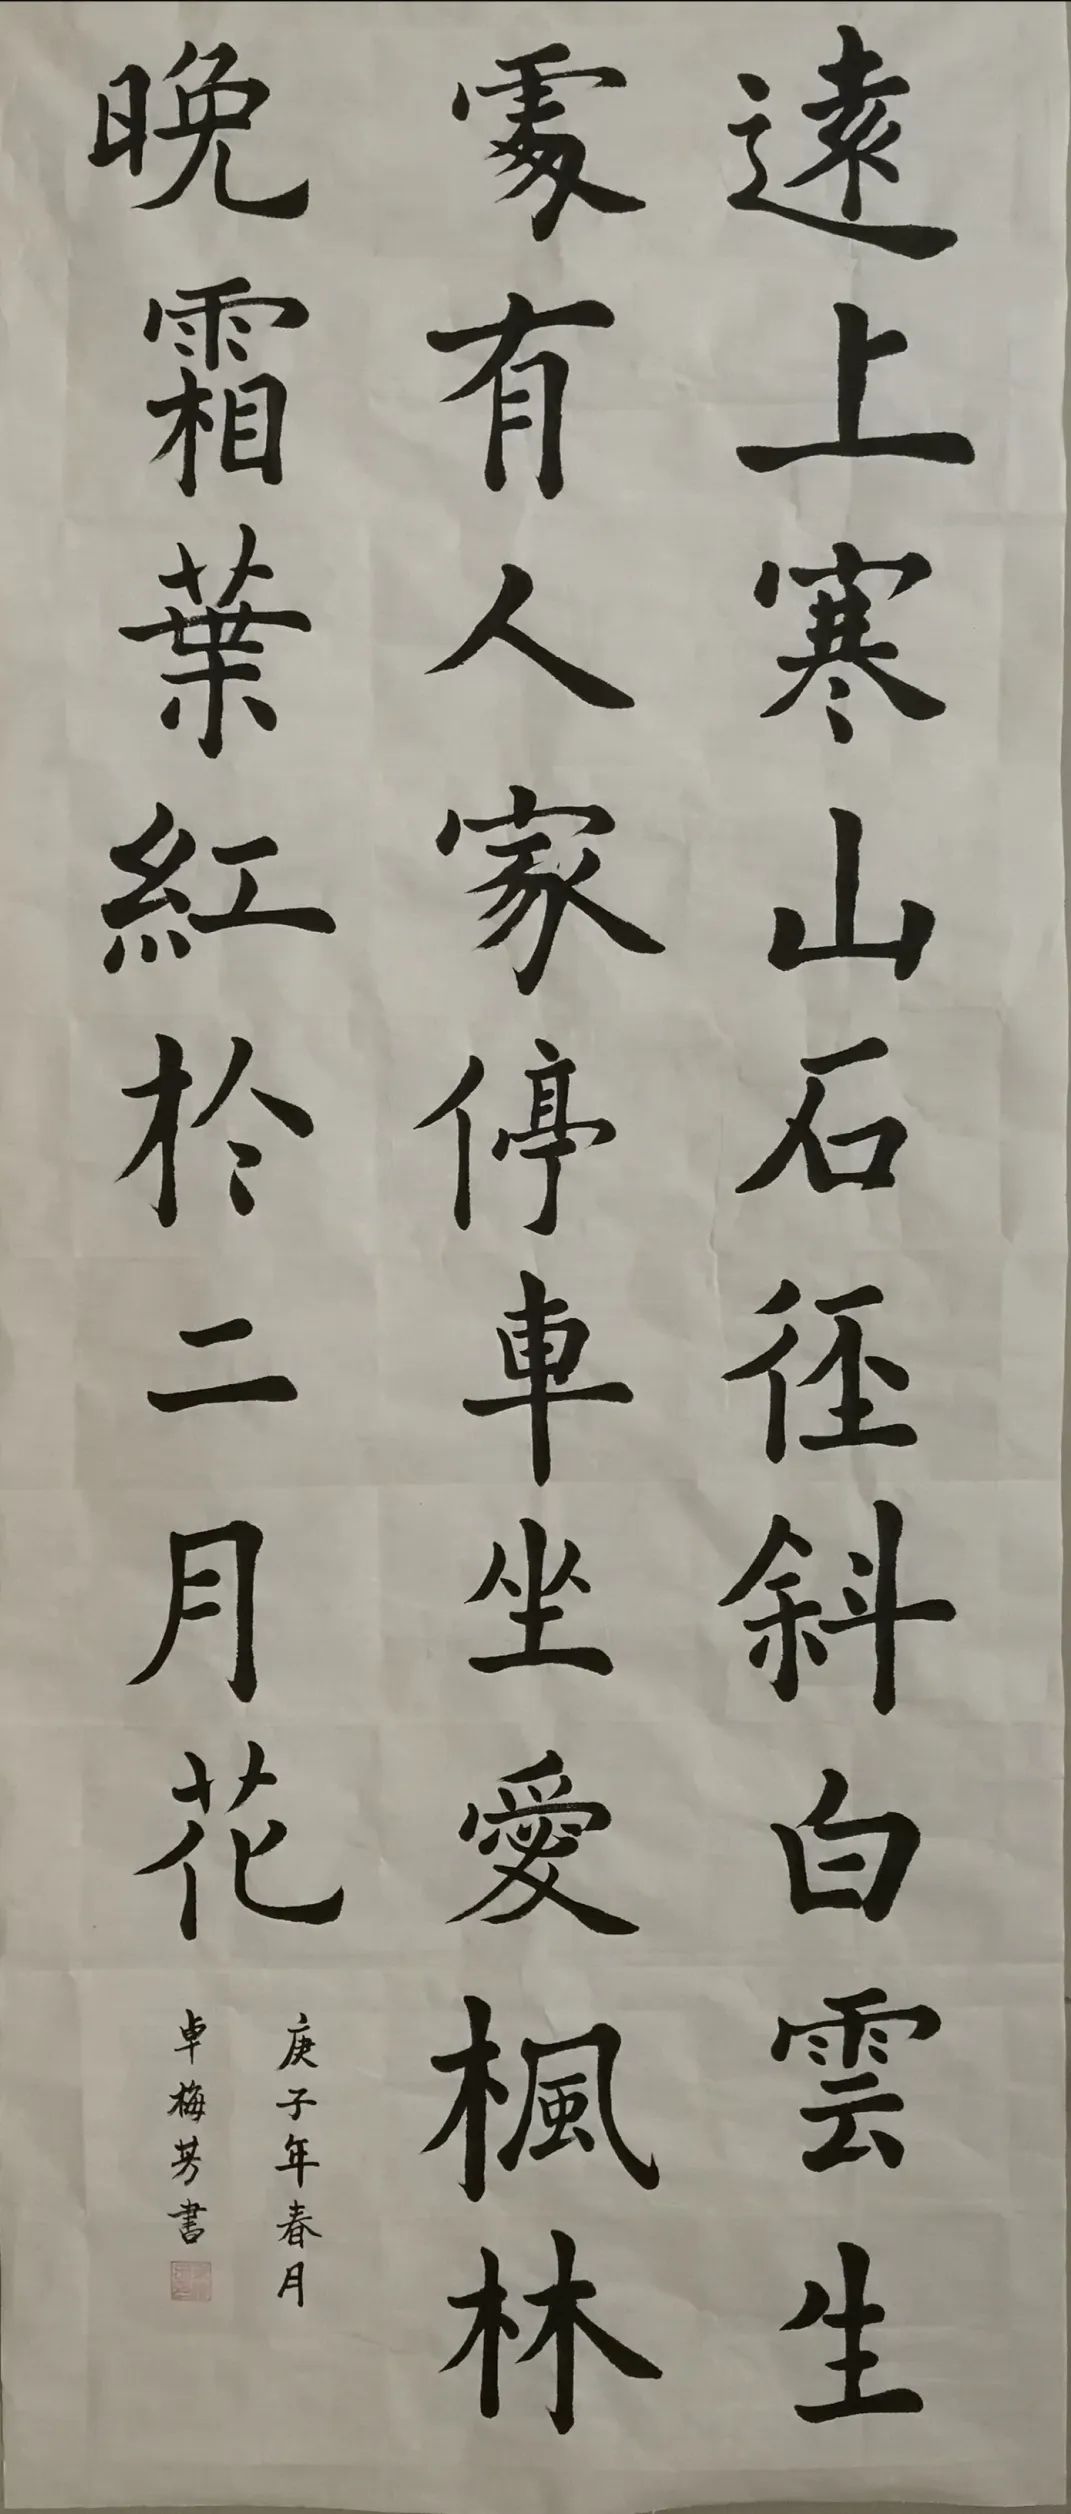 遠上寒山石径斜白雲生
處有人家停車坐愛楓林
晚霜葉紅於二月花
庚子年春月
卓梅芳書